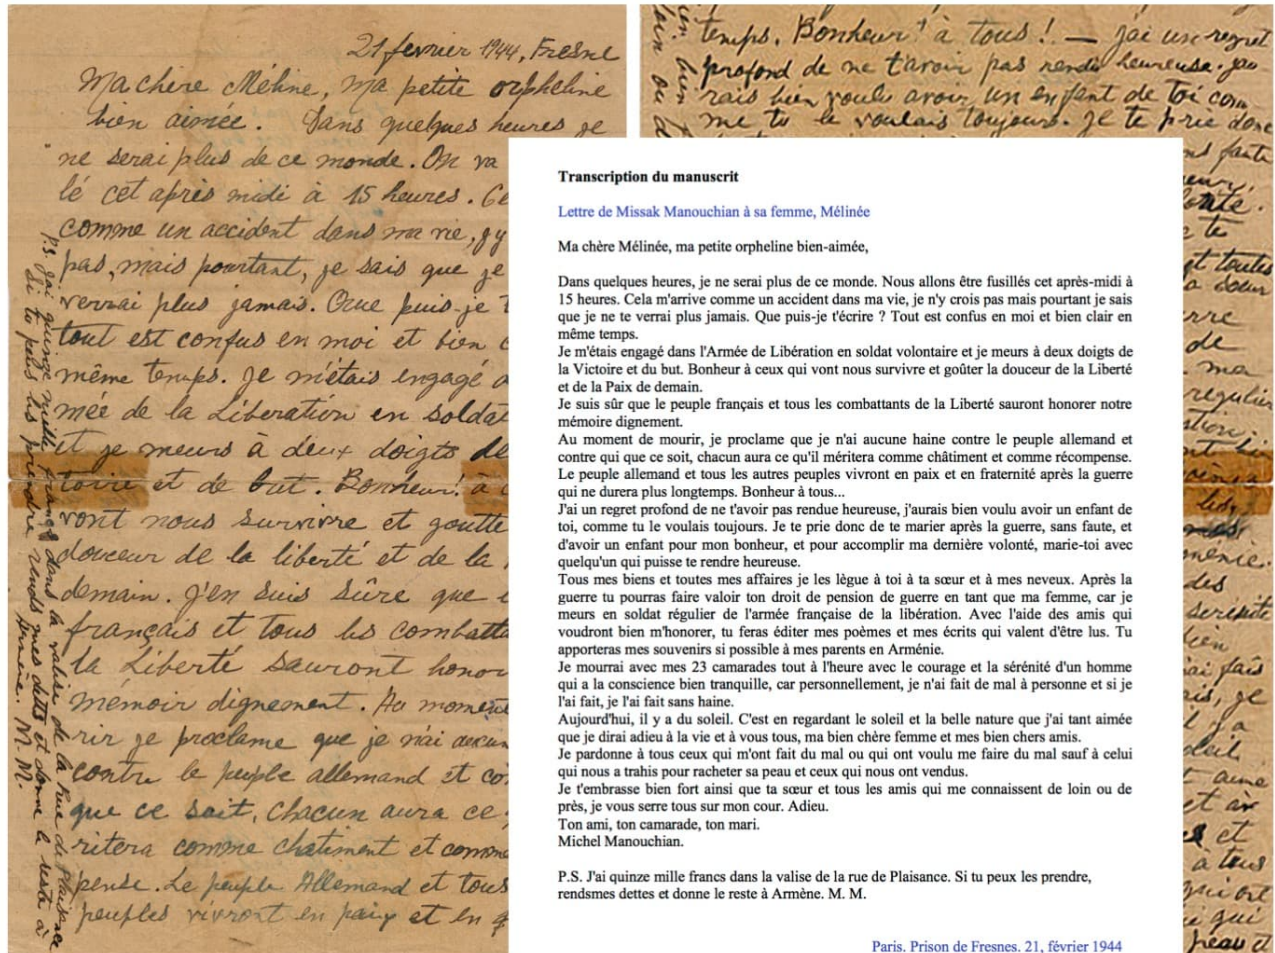 21 fevrier 1944, Fresne
Ma chère Méline, ma petite orpheline
bien aimée. Dans quelques heures je
ne serai plus de ce monde. On va
lé cet après midi à 15 heures. Ce
comme un accident dans ma vie, j'y
pas, mais pourtant, je sais que je
verrai plus jamais. Que puis-je t
tout est confus en moi et bien c
même temps. Je m'étais engagé
mée de la Libération en soldat
et je meurs à deux doigts de
toire et de but. Bonheur! à c
vont nous survivre et goutte
douceur de la liberté et de la
demain. J'en suis sûre que
français et tous les combatta
la Liberté sauront honor
mémoir dignement. Au moment
rir je proclame que je n'ai aucun
contre le peuple allemand et co
que ce soit, chacun aura ce
ritera comme chatiment et comme
pense. Le peuple Allemand et tous
peuples vivront en paix et en
P.S. J'ai quinze mille francs dans la valise de la Rue de Plaisance
Si tu peus les prendre rends mes dette et donne le reste à
Armène. M. M.
temps. Bonheur! à tous! — j'ai un regret
profond de ne t'avoir pas rendu heureuse. j'au
rais bien voulu avoir un enfant de toi com
me tu le voulais toujours. Je te prie donc
Transcription du manuscrit
Lettre de Missak Manouchian à sa femme, Mélinée
Ma chère Mélinée, ma petite orpheline bien-aimée,
Dans quelques heures, je ne serai plus de ce monde. Nous allons être fusillés cet après-midi à
15 heures. Cela m'arrive comme un accident dans ma vie, je n'y crois pas mais pourtant je sais
que je ne te verrai plus jamais. Que puis-je t'écrire ? Tout est confus en moi et bien clair en
même temps.
Je m'étais engagé dans l'Armée de Libération en soldat volontaire et je meurs à deux doigts de
la Victoire et du but. Bonheur à ceux qui vont nous survivre et goûter la douceur de la Liberté
et de la Paix de demain.
Je suis sûr que le peuple français et tous les combattants de la Liberté sauront honorer notre
mémoire dignement.
Au moment de mourir, je proclame que je n'ai aucune haine contre le peuple allemand et
contre qui que ce soit, chacun aura ce qu'il méritera comme châtiment et comme récompense.
Le peuple allemand et tous les autres peuples vivront en paix et en fraternité après la guerre
qui ne durera plus longtemps. Bonheur à tous...
J'ai un regret profond de ne t'avoir pas rendue heureuse, j'aurais bien voulu avoir un enfant de
toi, comme tu le voulais toujours. Je te prie donc de te marier après la guerre, sans faute, et
d'avoir un enfant pour mon bonheur, et pour accomplir ma dernière volonté, marie-toi avec
quelqu'un qui puisse te rendre heureuse.
Tous mes biens et toutes mes affaires je les lègue à toi à ta sœur et à mes neveux. Après la
guerre tu pourras faire valoir ton droit de pension de guerre en tant que ma femme, car je
meurs en soldat régulier de l'armée française de la libération. Avec l'aide des amis qui
voudront bien m'honorer, tu feras éditer mes poèmes et mes écrits qui valent d'être lus. Tu
apporteras mes souvenirs si possible à mes parents en Arménie.
Je mourrai avec mes 23 camarades tout à l'heure avec le courage et la sérénité d'un homme
qui a la conscience bien tranquille, car personnellement, je n'ai fait de mal à personne et si je
l'ai fait, je l'ai fait sans haine.
Aujourd'hui, il y a du soleil. C'est en regardant le soleil et la belle nature que j'ai tant aimée
que je dirai adieu à la vie et à vous tous, ma bien chère femme et mes bien chers amis.
Je pardonne à tous ceux qui m'ont fait du mal ou qui ont voulu me faire du mal sauf à celui
qui nous a trahis pour racheter sa peau et ceux qui nous ont vendus.
Je t'embrasse bien fort ainsi que ta sœur et tous les amis qui me connaissent de loin ou de
près, je vous serre tous sur mon cour. Adieu.
Ton ami, ton camarade, ton mari.
Michel Manouchian.
P.S. J'ai quinze mille francs dans la valise de la rue de Plaisance. Si tu peux les prendre,
rendsmes dettes et donne le reste à Armène. M. M.
Paris. Prison de Fresnes. 21, février 1944